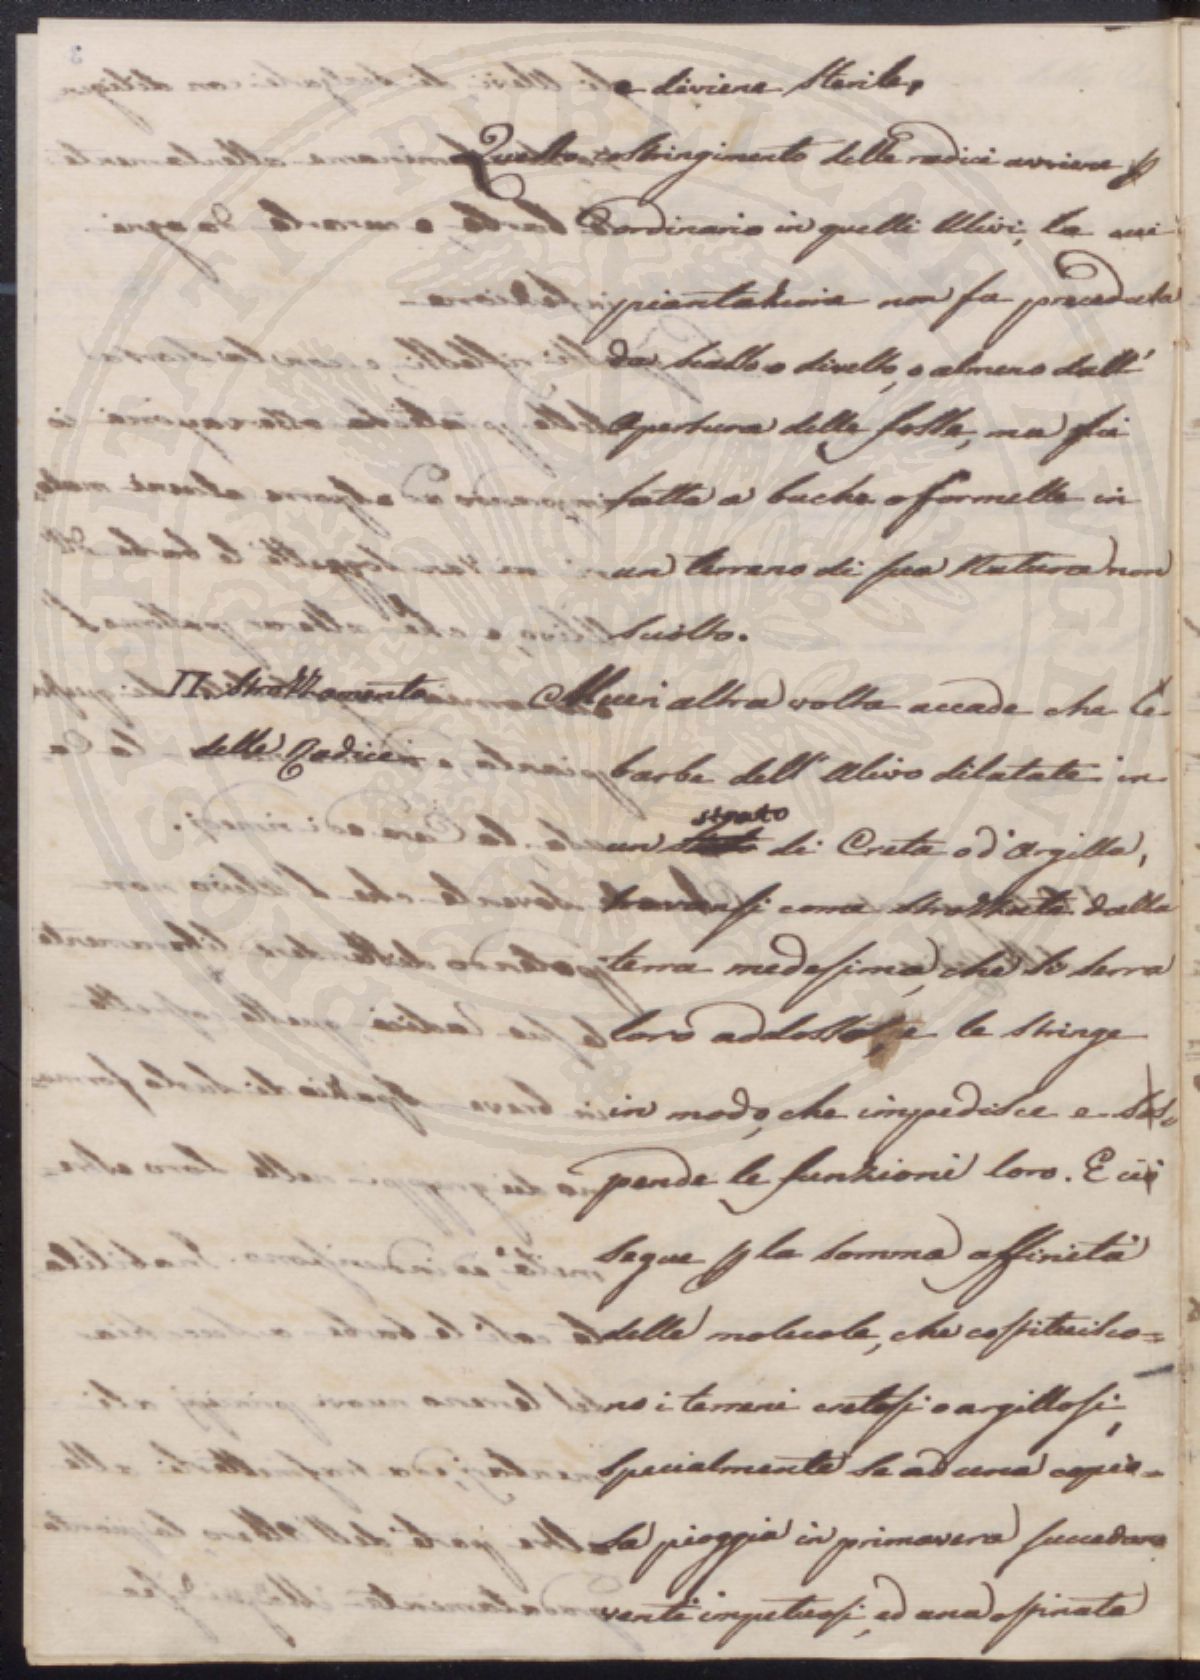 e diviene sterile.
Questo costringimento delle radici avviene p
ordinario in quelli Ulivi, la cui
piantazione non fu preceduta
da scasso o divelto, o almeno dall'
apertura delle fosse, ma fu
fatta a buche o formelle in
un terreno di sua Natura non
sciolto.
II. Strozzamento
delle Radici
Alcun altra volta accade che le
barbe dell' Ulivo dilatate in
strato
un di Creta o d'Argilla,
trovansi come strozzate dalla
terra medesima, che si serra
loro addosso, e le stringe
in modo, che impedisce e sos-
pende le funzioni loro. E ciò
segue p la somma affinità
delle molecole, che costituisco=
no i terreni cretosi o argillosi,
specialmente se ad una copio=
sa pioggia in primavera succedano
venti impetuosi, ed una ostinata